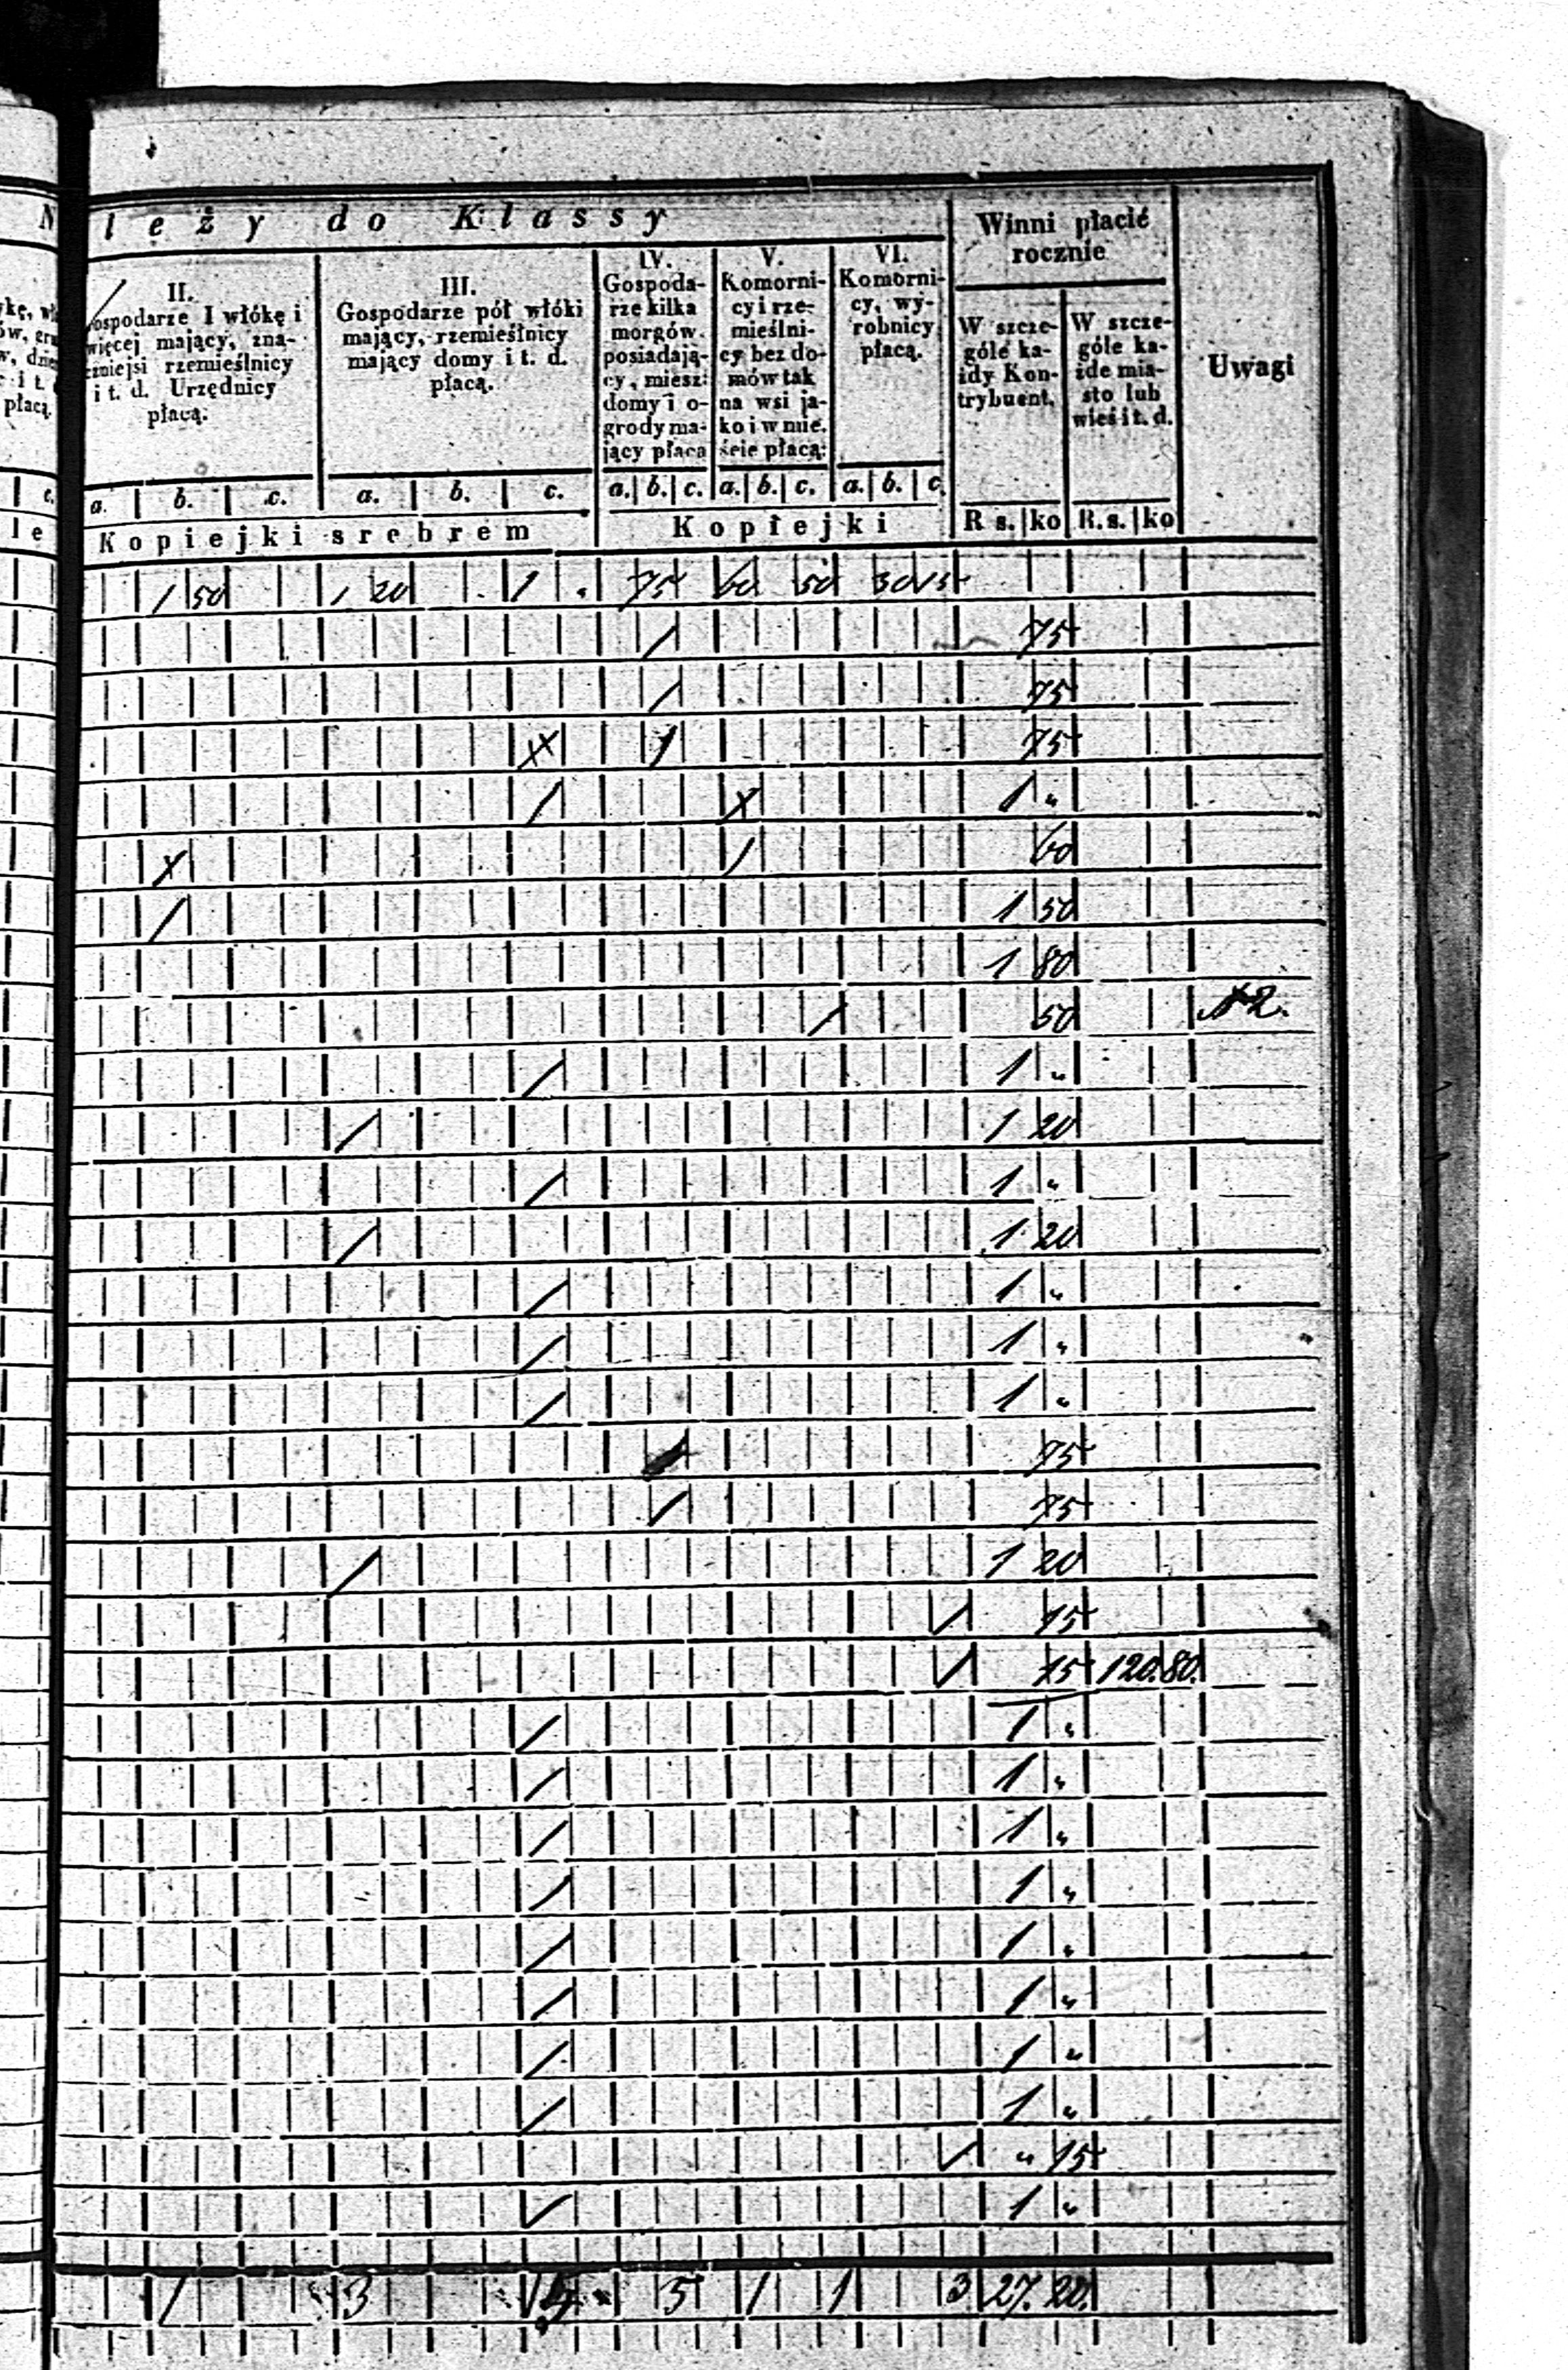 N
leży do Klassy
Winni płacić
rocznie
Uwagi
II.
ospodarze I włókę i
więcej mający, zna-
czniejsi rzemieślnicy
i t. d. Urzędnicy
płacą.
III.
Gospodarze pół włóki
mający, rzemieślnicy
mający domy i t. d.
płacą.
IV.
Gospoda-
rze kilka
morgów
posiadają-
cy, miesz:
domy i o-
grody ma-
jący płacą
V.
Komorni-
cy i rze-
mieślni-
cy bez do-
mów tak
na wsi ja-
ko i w mie.
ście płacą:
VI.
Komorni-
cy, wy-
robnicy
płacą.
W szcze-
góle ka-
żdy Kon-
trybuent.
W szcze-
góle ka-
żde mia-
sto lub
wieś i t. d.
płacą
c. a. b. c. a. b. c. a. b. c. a. b. c. a. b. c.
le Kopiejki srebrem Kopiejki R s. ko R. s. ko
1 50 1 20 1 . 75 60 50 30 15
/ 75
/ 75
X / 75
/ X 1 "
X / 60
/ 1 50
1 80
/ 50
/ 1 "
/ 1 20
/ 1 "
/ 1 20
/ 1 "
/ 1 "
/ 1 "
/ 75
/ 75
/ 1 20
/ 15
/ 15 120.80.
/ 1 "
/ 1 "
/ 1 "
/ 1 "
/ 1 "
/ 1 "
/ 1 "
/ 1 "
/ " 15
/ 1 "
1 3 5 1 1 3 27. 20.